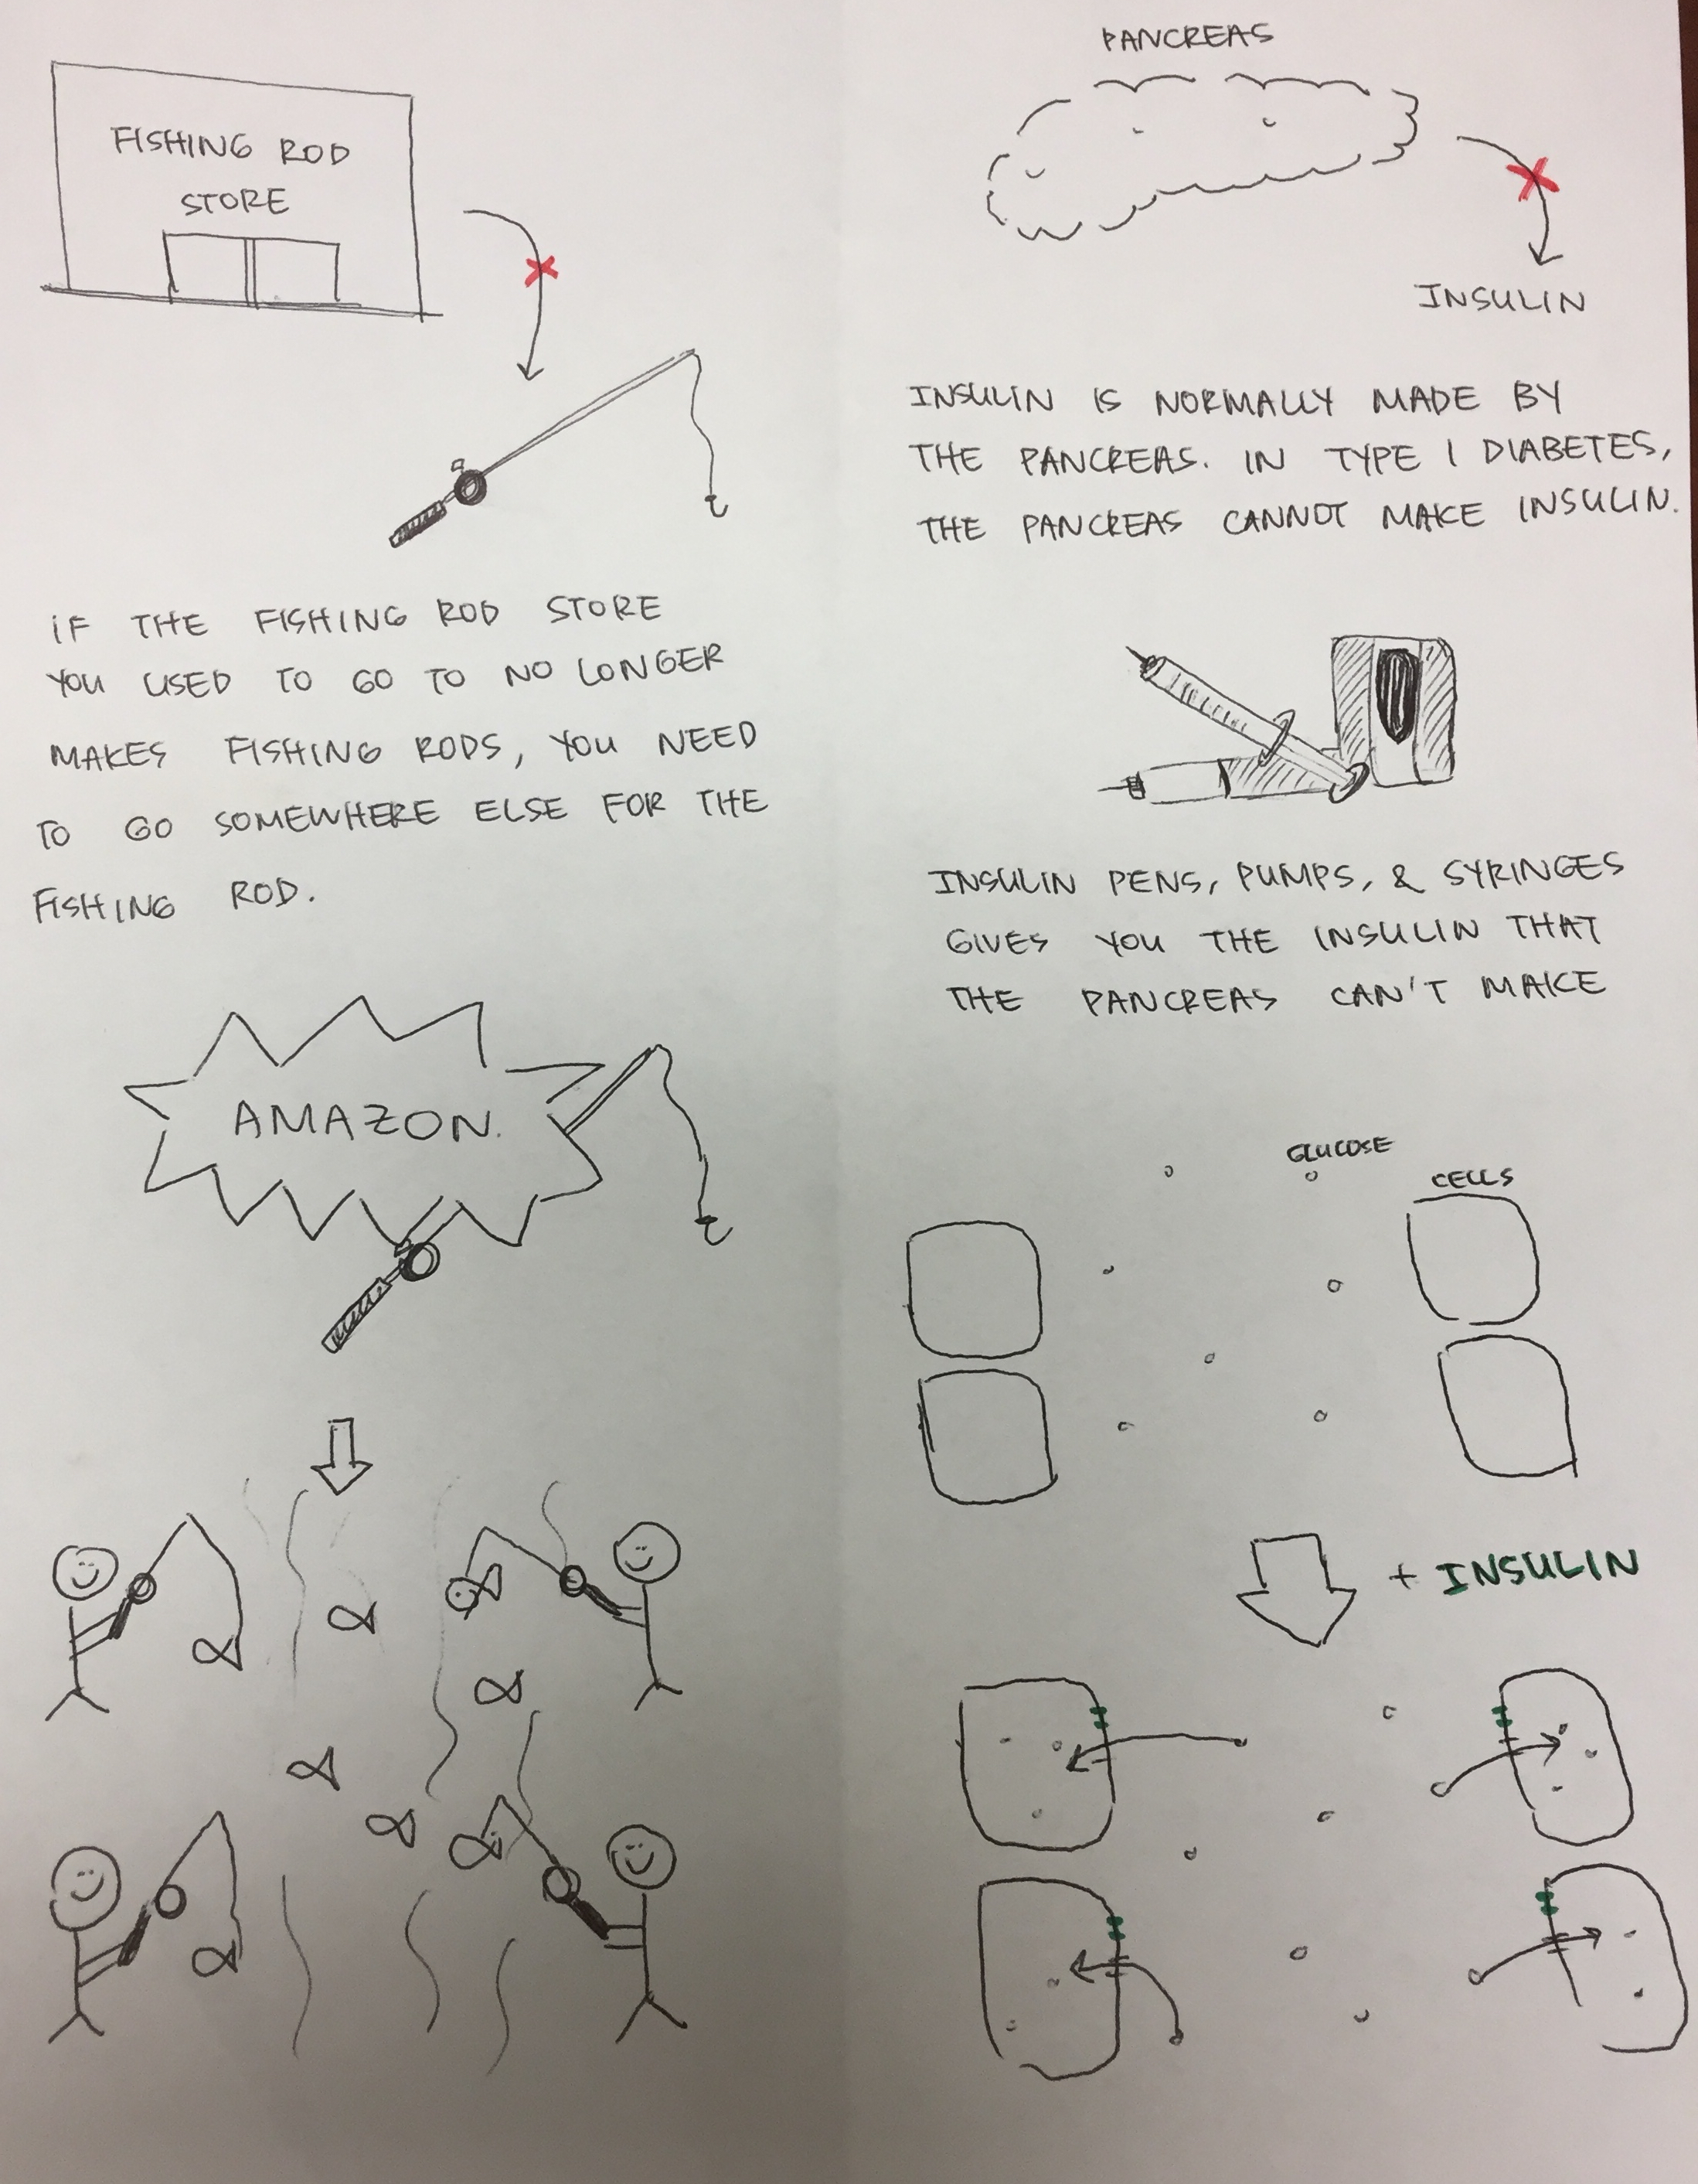 FISHING ROD
STORE
IF THE FISHING ROD STORE
YOU USED TO GO TO NO LONGER
MAKES FISHING RODS, YOU NEED
TO GO SOMEWHERE ELSE FOR THE
FISHING ROD.
AMAZON.
PANCREAS
INSULIN
INSULIN IS NORMALLY MADE BY
THE PANCREAS. IN TYPE 1 DIABETES,
THE PANCREAS CANNOT MAKE INSULIN.
INSULIN PENS, PUMPS, & SYRINGES
GIVES YOU THE INSULIN THAT
THE PANCREAS CAN'T MAKE
GLUCOSE
CELLS
+ INSULIN